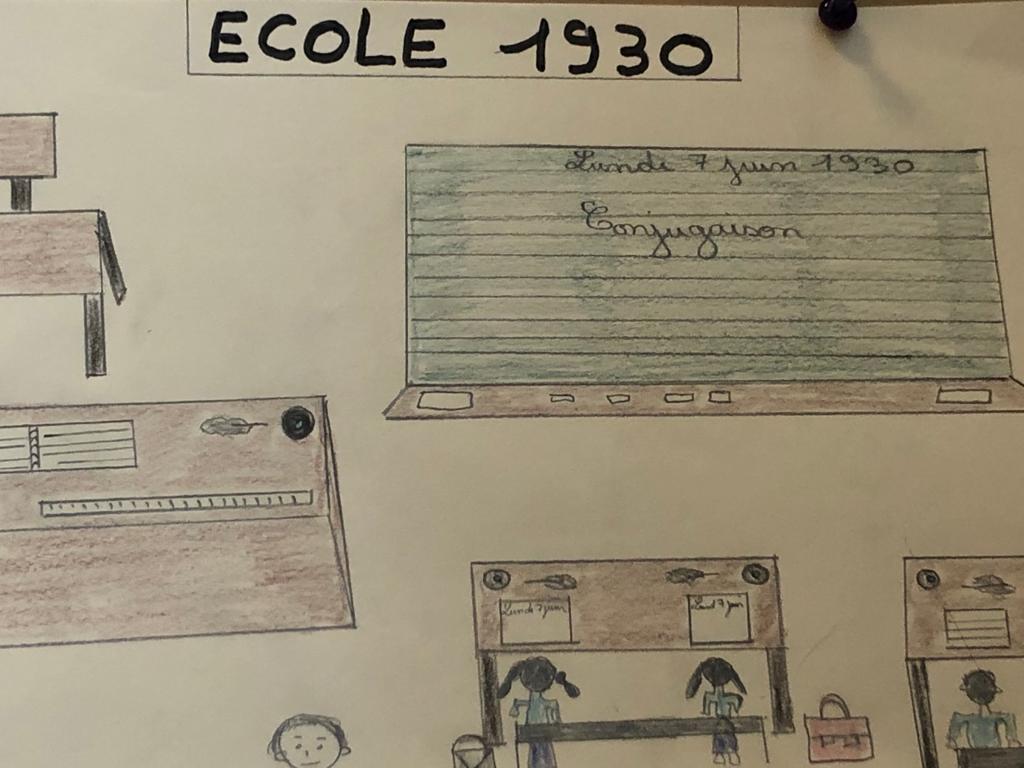 ECOLE 1930
Lundi 7 juin 1930
Conjugaison
Lundi 7 juin
Lundi 7 juin